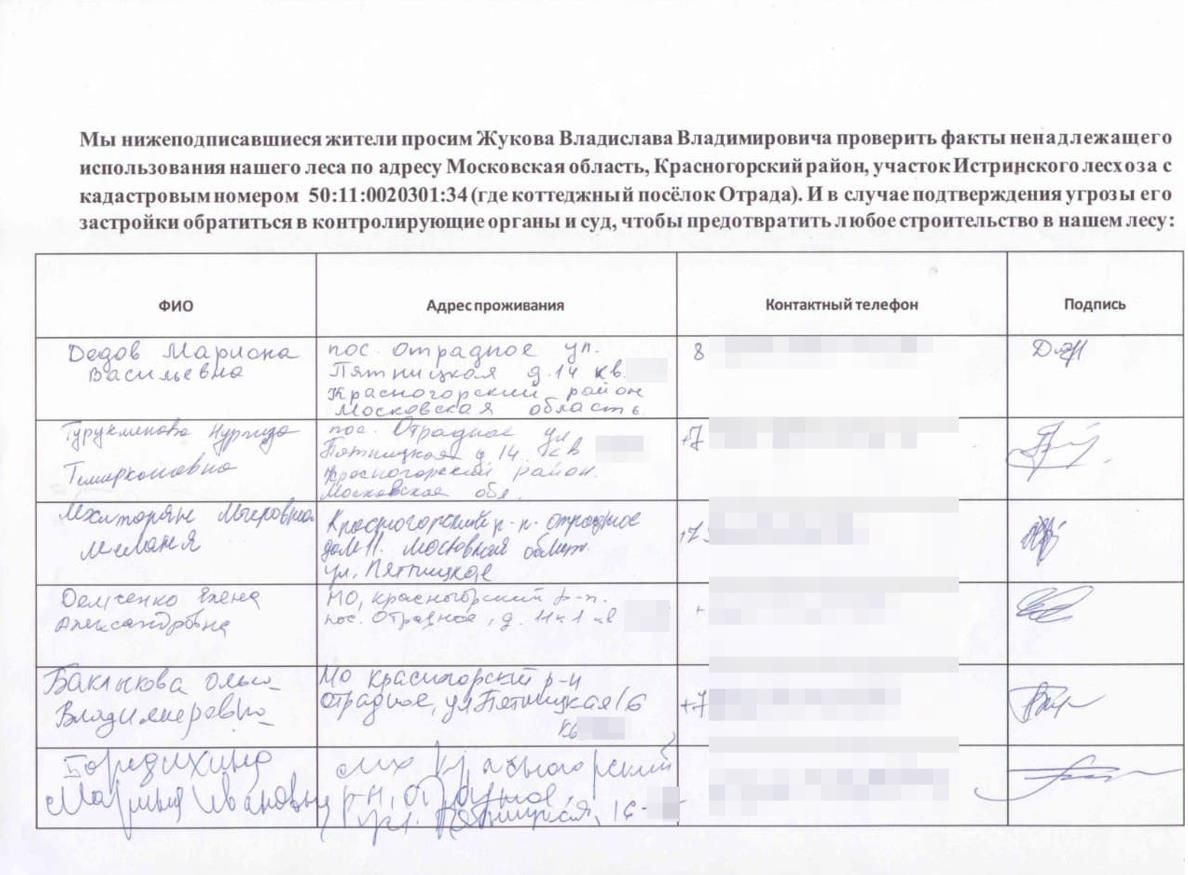 Мы нижеподписавшиеся жители просим Жукова Владислава Владимировича проверить факты ненадлежащего
использования нашего леса по адресу Московская область, Красногорский район, участок Истринского лесхоза с
кадастровым номером 50:11:0020301:34 (где коттеджный посёлок Отрада). И в случае подтверждения угрозы его
застройки обратиться в контролирующие органы и суд, чтобы предотвратить любое строительство в нашем лесу:
ФИО Адрес проживания Контактный телефон Подпись
Дедов Мариона
Васильевна
пос. Отрадное ул.
Пятницкая д. 14 кв.
Красногорский район
Московская область
8
Тимирхановна
пос. Отрадное ул
Пятницкая д 14. кв
Красногорский район.
Московская обл.
+7
Мхиторян Мгеровна
Мелания
Красногорский р-н. отрадное
дом 11. Московкая област.
ул. Пятницкое
+7
Елена
Александровна
МО, красногорский р-н.
пос. Отрадное, д. 11 к 1 кв
+
Баклыкова Ольга
Владимировна
МО Красногорский р-н
Отрадное, ул Пятницкая 16
кв
+7
Бородихина
Марина Ивановна
Красногорский
р-н, Отрадное,
ул. Пятницкая, 16-